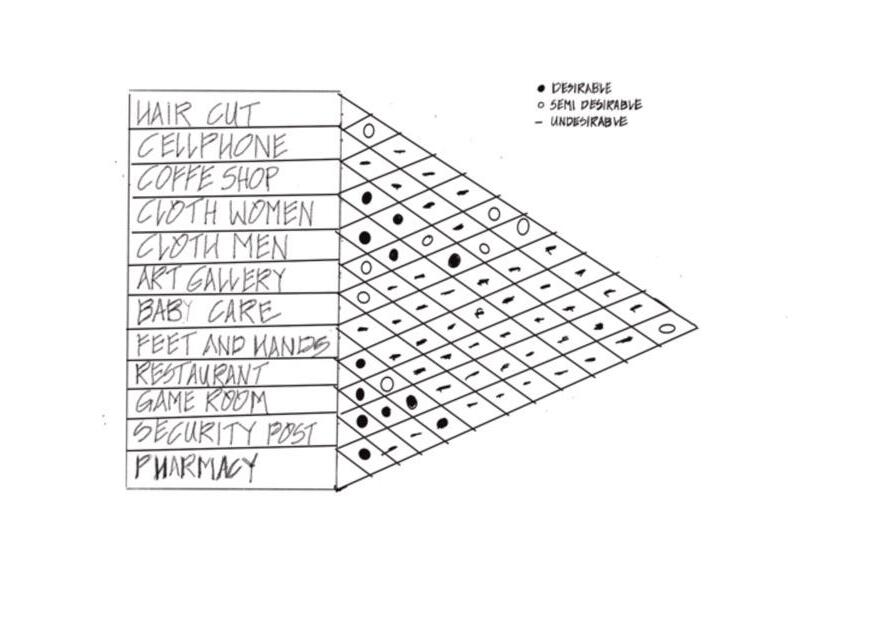 HAIR CUT
CELLPHONE
COFFE SHOP
CLOTH WOMEN
CLOTH MEN
ART GALLERY
BABY CARE
FEET AND HANDS
RESTAURANT
GAME ROOM
SECURITY POST
PHARMACY
● DESIRABLE
○ SEMI DESIRABLE
– UNDESIRABLE